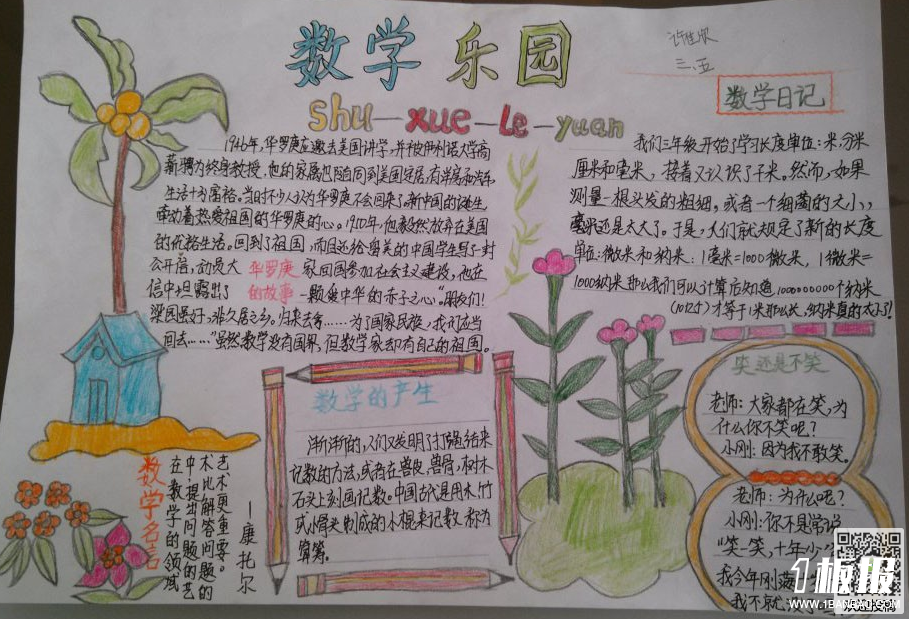 数学乐园
shu—xue—Le—yuan
三、五
数学日记
1946年,华罗庚应邀去美国讲学,并被伊利诺大学高
薪聘为终身教授,他的家属也随同到美国定居,有洋房和汽车,
生活十分富裕。当时不少人认为华罗庚不会回来了,新中国的诞生,
牵动着热爱祖国的华罗庚的心。1950年,他毅然放弃在美国
的优裕生活。回到了祖国,而且还给留美的中国学生写了一封
公开信,动员大
家回国参加社会主义建设,他在
信中坦露出了
一颗爱中华的赤子之心"朋友们!
华罗庚
的故事
梁园虽好,非久居之乡。归来去兮……为了国家民族,我们应当
回去……"虽然数学没有国界,但数学家却有自己的祖国。
我们三年级开始学习长度单位:米.分米
厘米和毫米,接着又认识了千米。然而,如果
测量一根头发的粗细,或者一个细菌的大小,
毫米还是太大了。于是,人们就规定了新的长度
单位:微米和纳米:1毫米=1000微米,1微米=
1000纳米那么我们可以计算后知道,1000000000个纳米
(10亿个)才等于1米那么长,纳米真的太小了!
数学的产生
渐渐的,人们又发明了打绳结来
记数的方法,或者在兽皮,兽骨,树木
石头上刻画记数。中国古代是用木,竹
或小骨头制成的小棍来记数,称为
算筹。
数学名言
在数学的领域
中,提出问题的艺
术比解答问题的
艺术更重要。
—康托尔
笑还是不笑
老师:大家都在笑,为
什么你不笑呢?
小刚:因为我不敢笑。
老师:为什么呢?
小刚:你不是常说
"笑一笑,十年少
我今年刚满
我不就没了
1板报
WWW.1BANBAO.COM
欢迎投稿